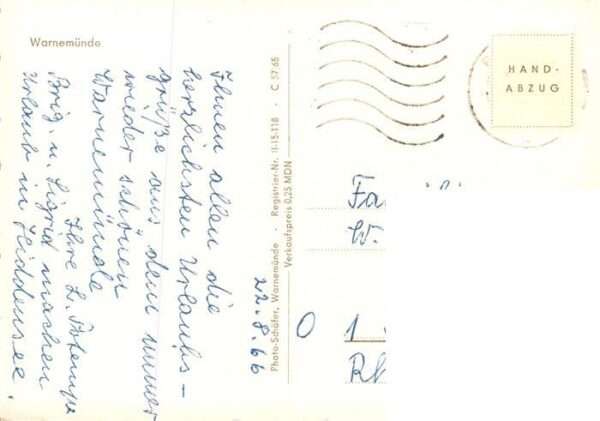 Warnemünde
22.8.66
Ihnen allen die
herzlichsten Urlaubs-
grüße aus dem immer
wieder schönen
Warnemünde
Ihre L.
Brig. u. Sigrid machen
Urlaub in Hiddensee.
Photo-Schäfer, Warnemünde · Registrier-Nr. II-15-118 · C 57 65
Verkaufspreis 0,25 MDN
HAND-
ABZUG
Fa
W.
O 1
Rh